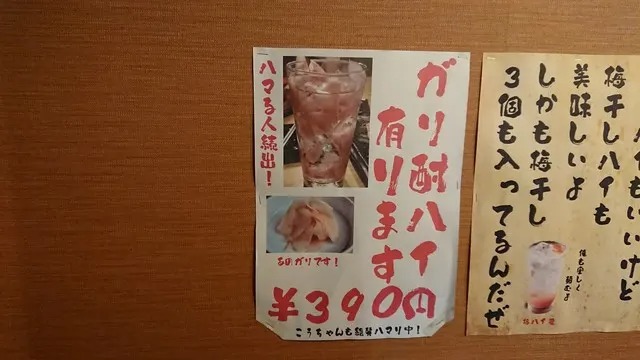 ガリ酎ハイ
有ります
ハマる人続出!
ガリです!
¥390円
こうちゃんも絶賛ハマり中!
ハイもいいけど
梅干しハイも
美味しいよ
しかも梅干し
3個も入ってるんだぜ
俺も宜しく
頼むよ
梅ハイ